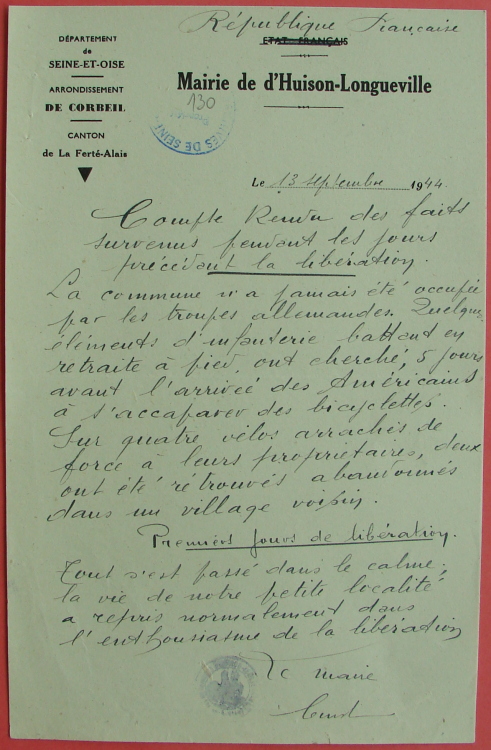 République Française
ETAT FRANÇAIS
DÉPARTEMENT
de
SEINE-ET-OISE
ARRONDISSEMENT
DE CORBEIL
CANTON
de La Ferté-Alais
Mairie de d'Huison-Longueville
130
DE SEINE
Le 13 septembre 1944.
Compte Rendu des faits
survenus pendant les jours
précédant la libération.
La commune n'a jamais été occupée
par les troupes allemandes. Quelques
éléments d'infanterie battant en
retraite à pied, ont cherché, 5 jours
avant l'arrivée des Américains
à s'accaparer des bicyclettes.
Sur quatre vélos arrachés de
force à leurs propriétaires, deux
ont été retrouvés abandonnés
dans un village voisin.
Premiers jours de libération.
Tout s'est passé dans le calme;
la vie de notre petite localité
a repris normalement dans
l'enthousiasme de la libération
Le maire